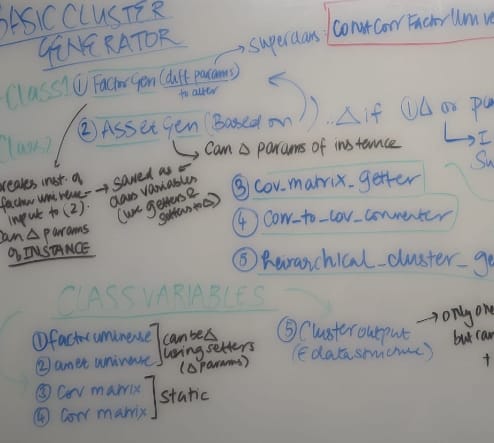 BASIC CLUSTER
GENERATOR
→ superclass: ConstCorrFactorUnive
Class 1 ① FactorGen (diff params)
to alter
Class 2 ② ASSET Gen (Based on ) .. Δ if ① Δ or pa
→ I
Su
→ Can Δ params of instance
reates inst. of
factor universe
input to (2).
an Δ params
of INSTANCE
→ saved as
class variables
(use getters &
setters to Δ)
③ cov_matrix_getter
④ Corr_to_cov_converter
⑤ heirarchical_cluster_ge
CLASS VARIABLES
① factor universe
② asset universe
can be Δ
using setters
(Δ params)
③ Cov matrix
④ Corr matrix
static
⑤ Cluster output
(E data structure)
→ only one
but ran
+